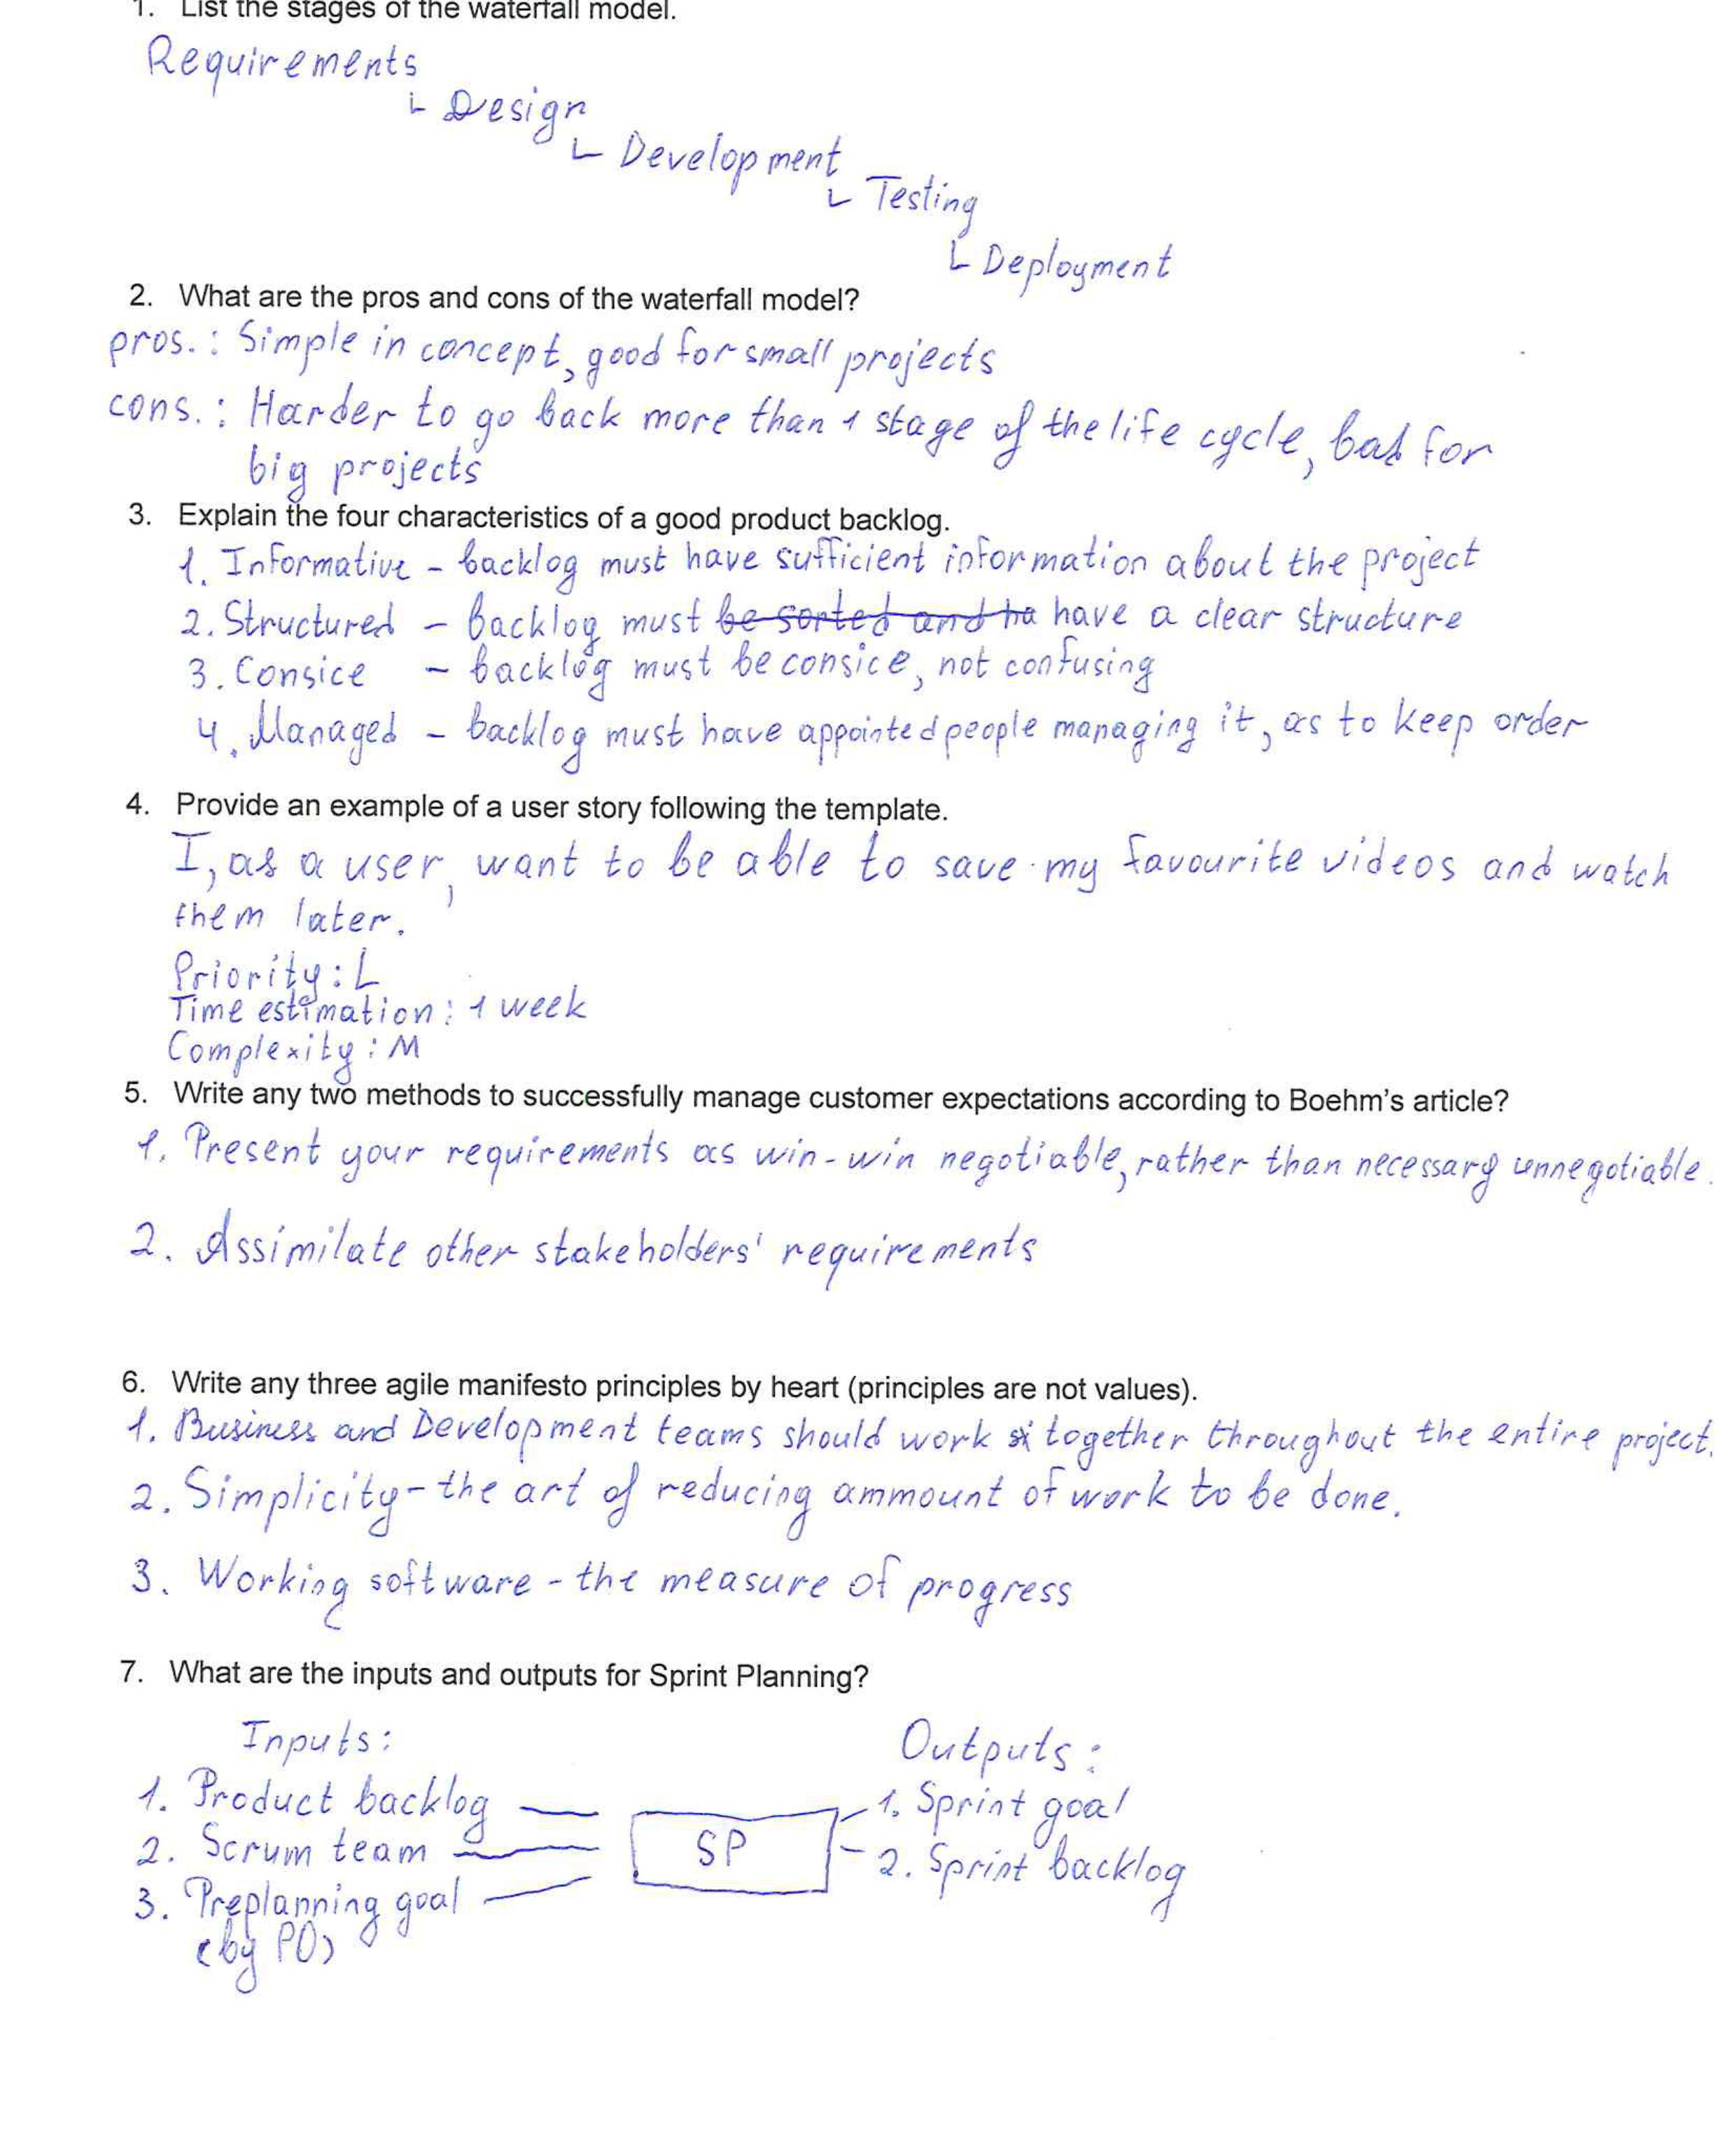 1. List the stages of the waterfall model.
Requirements
Design
Development
Testing
Deployment
2. What are the pros and cons of the waterfall model?
pros.: Simple in concept, good for small projects
cons.: Harder to go back more than 1 stage of the life cycle, bad for
big projects
3. Explain the four characteristics of a good product backlog.
1. Informative - backlog must have sufficient information about the project
2. Structured - backlog must be sorted and ha have a clear structure
3. Consice - backlog must be consice, not confusing
4. Managed - backlog must have appointed people managing it, as to keep order
4. Provide an example of a user story following the template.
I, as a user, want to be able to save my favourite videos and watch
them later.
Priority: L
Time estimation: 1 week
Complexity: M
5. Write any two methods to successfully manage customer expectations according to Boehm's article?
1. Present your requirements as win-win negotiable, rather than necessary unnegotiable.
2. Assimilate other stakeholders' requirements
6. Write any three agile manifesto principles by heart (principles are not values).
1. Business and Development teams should work together throughout the entire project.
2. Simplicity - the art of reducing ammount of work to be done.
3. Working software - the measure of progress
7. What are the inputs and outputs for Sprint Planning?
Inputs:
1. Product backlog
2. Scrum team
3. Preplanning goal
(by PO)
SP
Outputs:
1. Sprint goal
2. Sprint backlog